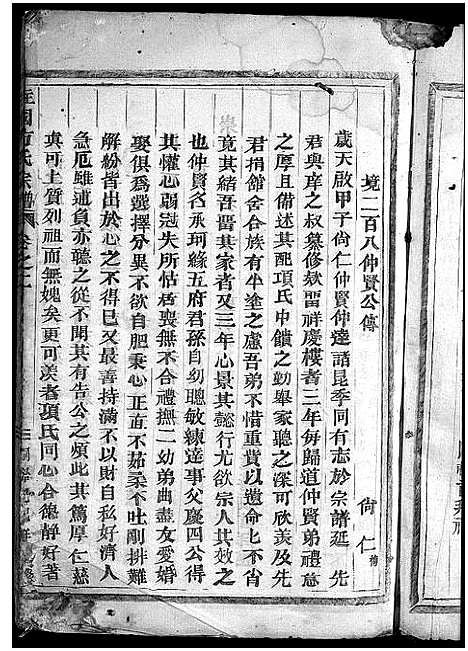 境二百八仲賢公傳　尙仁
歲天啟甲子尙仁仲賢仲達諸昆季同有志於宗譜延　先
君與庠之叔纂修歙畱祥慶樓者三年每歸道仲賢弟禮慈
之厚且備述其配項氏中饋之勤舉家聽之深可欣羨及先
君捐館舍合族有半塗之慮吾弟不惜重貲以遺命上不肖
竟其緒吾畱其家者又三年心景其懿行尤欲宗人其效之
也仲賢名承珂緣五府君孫自幼聰敏練達事父慶四公得
其懽心弱冠失所怙善喪無不合禮撫二幼弟曲盡友愛婚
娶俱爲選擇分異不欲自肥秉心正直不茹柔不吐剛排難
解紛皆出於心之不得巳又最善持滿不以財自私好濟人
急厄雖逋負亦聽之從不聞其有告公之煩此其篤厚仁慈
真可上質列祖而無媿矣更可羨者項氏同心合德靜好著
宗譜
卷之